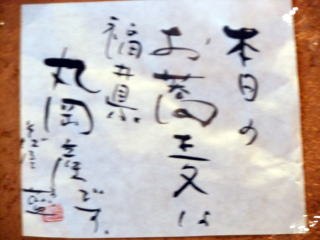 本日の
お蕎麦は
福井県
丸岡産です。